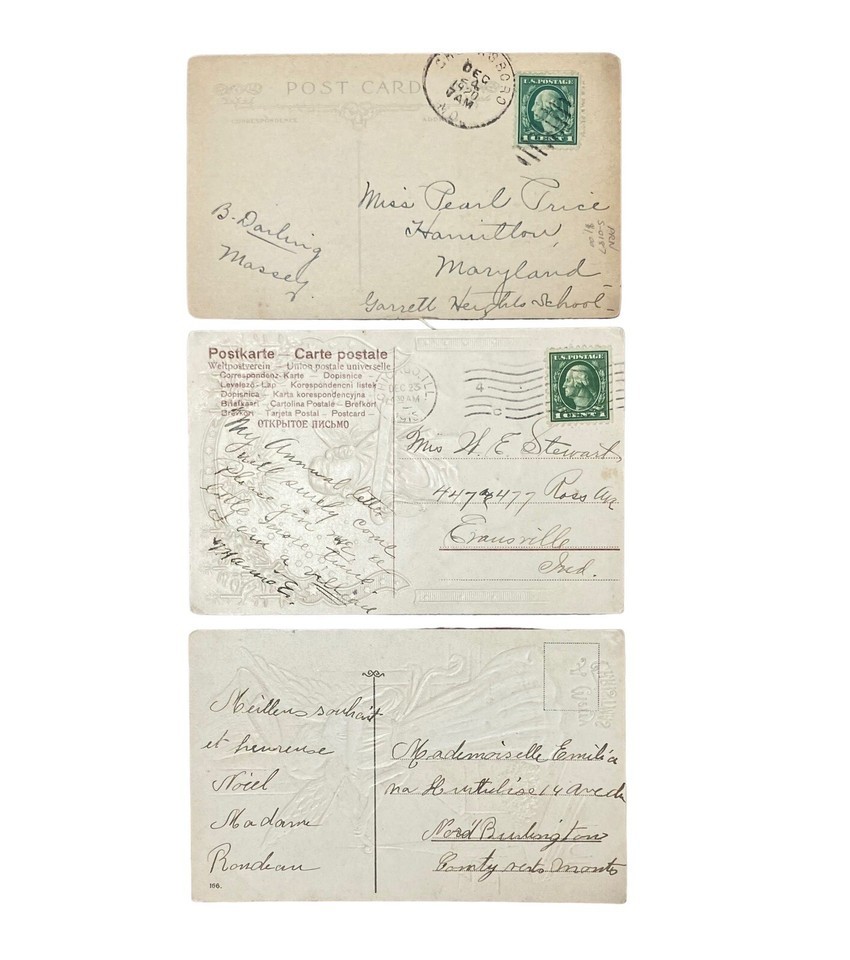 POST CARD
CORRESPONDENCE
DEC
1920
7AM
U.S. POSTAGE
1 CENT 1
Miss Pearl Price
Hamilton,
Maryland
Garrett Heights School
B. Darling
Massey.
Postkarte — Carte postale
Weltpostverein — Union postale universelle
Correspondenz-Karte — Dopisnice
Levelező-Lap — Korespondencni listek
Dopisnica — Karta korespondencyjna
Briefkaart — Cartolina Postale — Brefkort
Brevkort — Tarjeta Postal — Postcard
ОТКРЫТОЕ ПИСЬМО
DEC 23
AM
U.S. POSTAGE
1 CENT 1
My Annual letter
will surely come
Please give me a
little more time.
I am a
Mrs W. E. Stewart
477 Ross Ave
Evansville
Ind.
Meilleus souhait
et heureuse
Noiel
Madame
Rondeau
106.
Mademoiselle Emilia
Nord Burlington